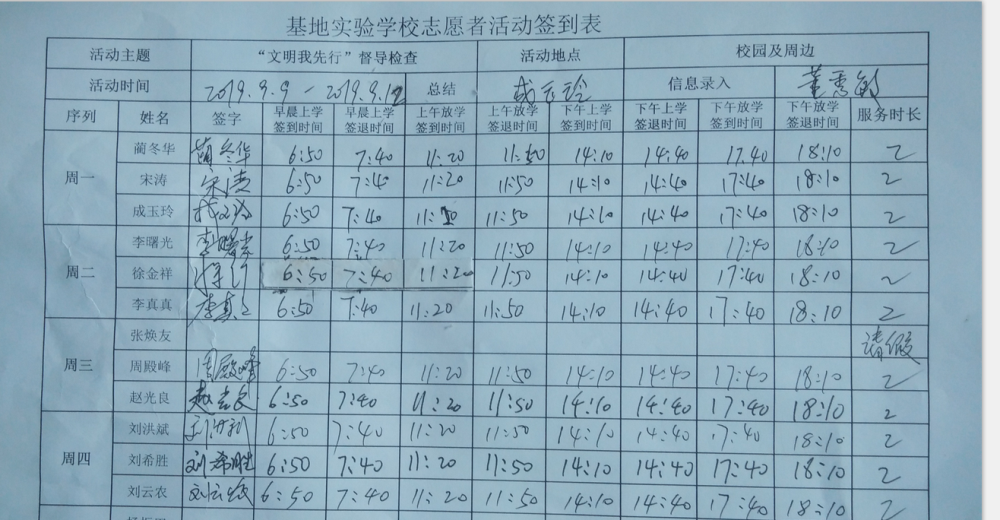 基地实验学校志愿者活动签到表
活动主题 “文明我先行”督导检查 活动地点 校园及周边
活动时间 2019.9.9 - 2019.9.12 总结 成玉玲 信息录入 董秀敏
序列 姓名 签字 早晨上学签到时间 早晨上学签退时间 上午放学签到时间 上午放学签退时间 下午上学签到时间 下午上学签退时间 下午放学签到时间 下午放学签退时间 服务时长
周一 蔺冬华 蔺冬华 6:50 7:40 11:20 11:50 14:10 14:40 17.40 18:10 2
宋涛 宋涛 6:50 7:40 11:20 11:50 14:10 14:40 17:40 18:10 2
成玉玲 成玉玲 6:50 7:40 11:20 11:50 14:10 14:40 17:40 18:10 2
周二 李曙光 李曙光 6:50 7:40 11:20 11:50 14:10 14:40 17:40 18:10 2
徐金祥 6:50 7:40 11:20 11:50 14:10 14:40 17:40 18:10 2
李真真 李真真 6:50 7:40 11:20 11:50 14:10 14:40 17:40 18:10 2
周三 张焕友 请假
周殿峰 周殿峰 6:50 7:40 11:20 11:50 14:10 14:40 17:40 18:10 2
赵光良 赵光良 6:50 7:40 11:20 11:50 14:10 14:40 17:40 18:10 2
周四 刘洪斌 6:50 7:40 11:20 11:50 14:10 14:40 17:40 18:10 2
刘希胜 刘希胜 6:50 7:40 11:20 11:50 14:10 14:40 17:40 18:10 2
刘云农 刘云农 6:50 7:40 11:20 11:50 14:10 14:40 17:40 18:10 2